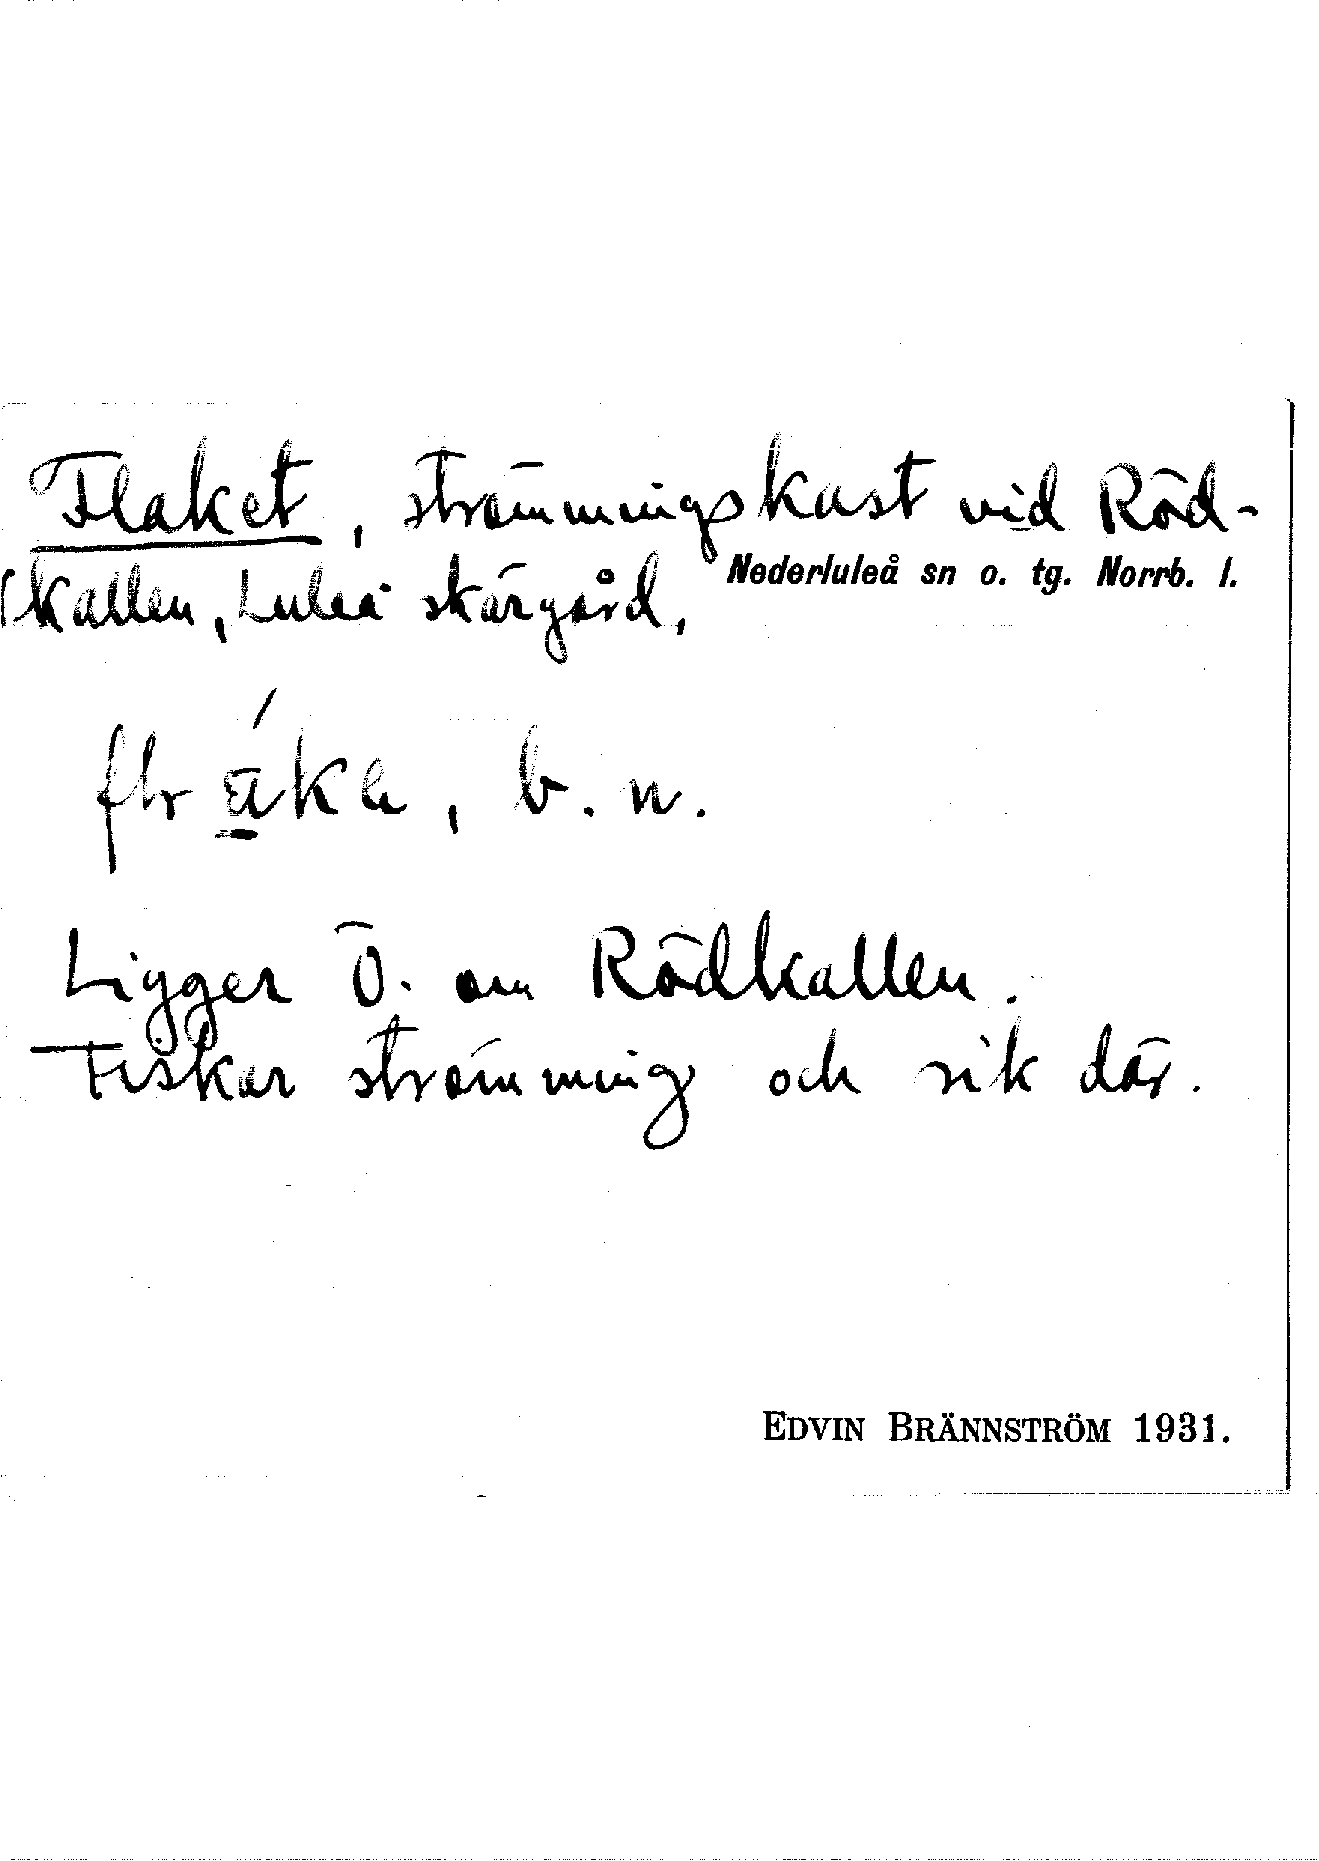 Flaket, strömmingskast vid Röd-
Nederluleå sn o. tg. Norrb. l.
kallen, Luleå skärgård,
b. n.
Ligger Ö. om Rödkallen.
Fiskar strömming och sik där.
EDVIN BRÄNNSTRÖM 1931.